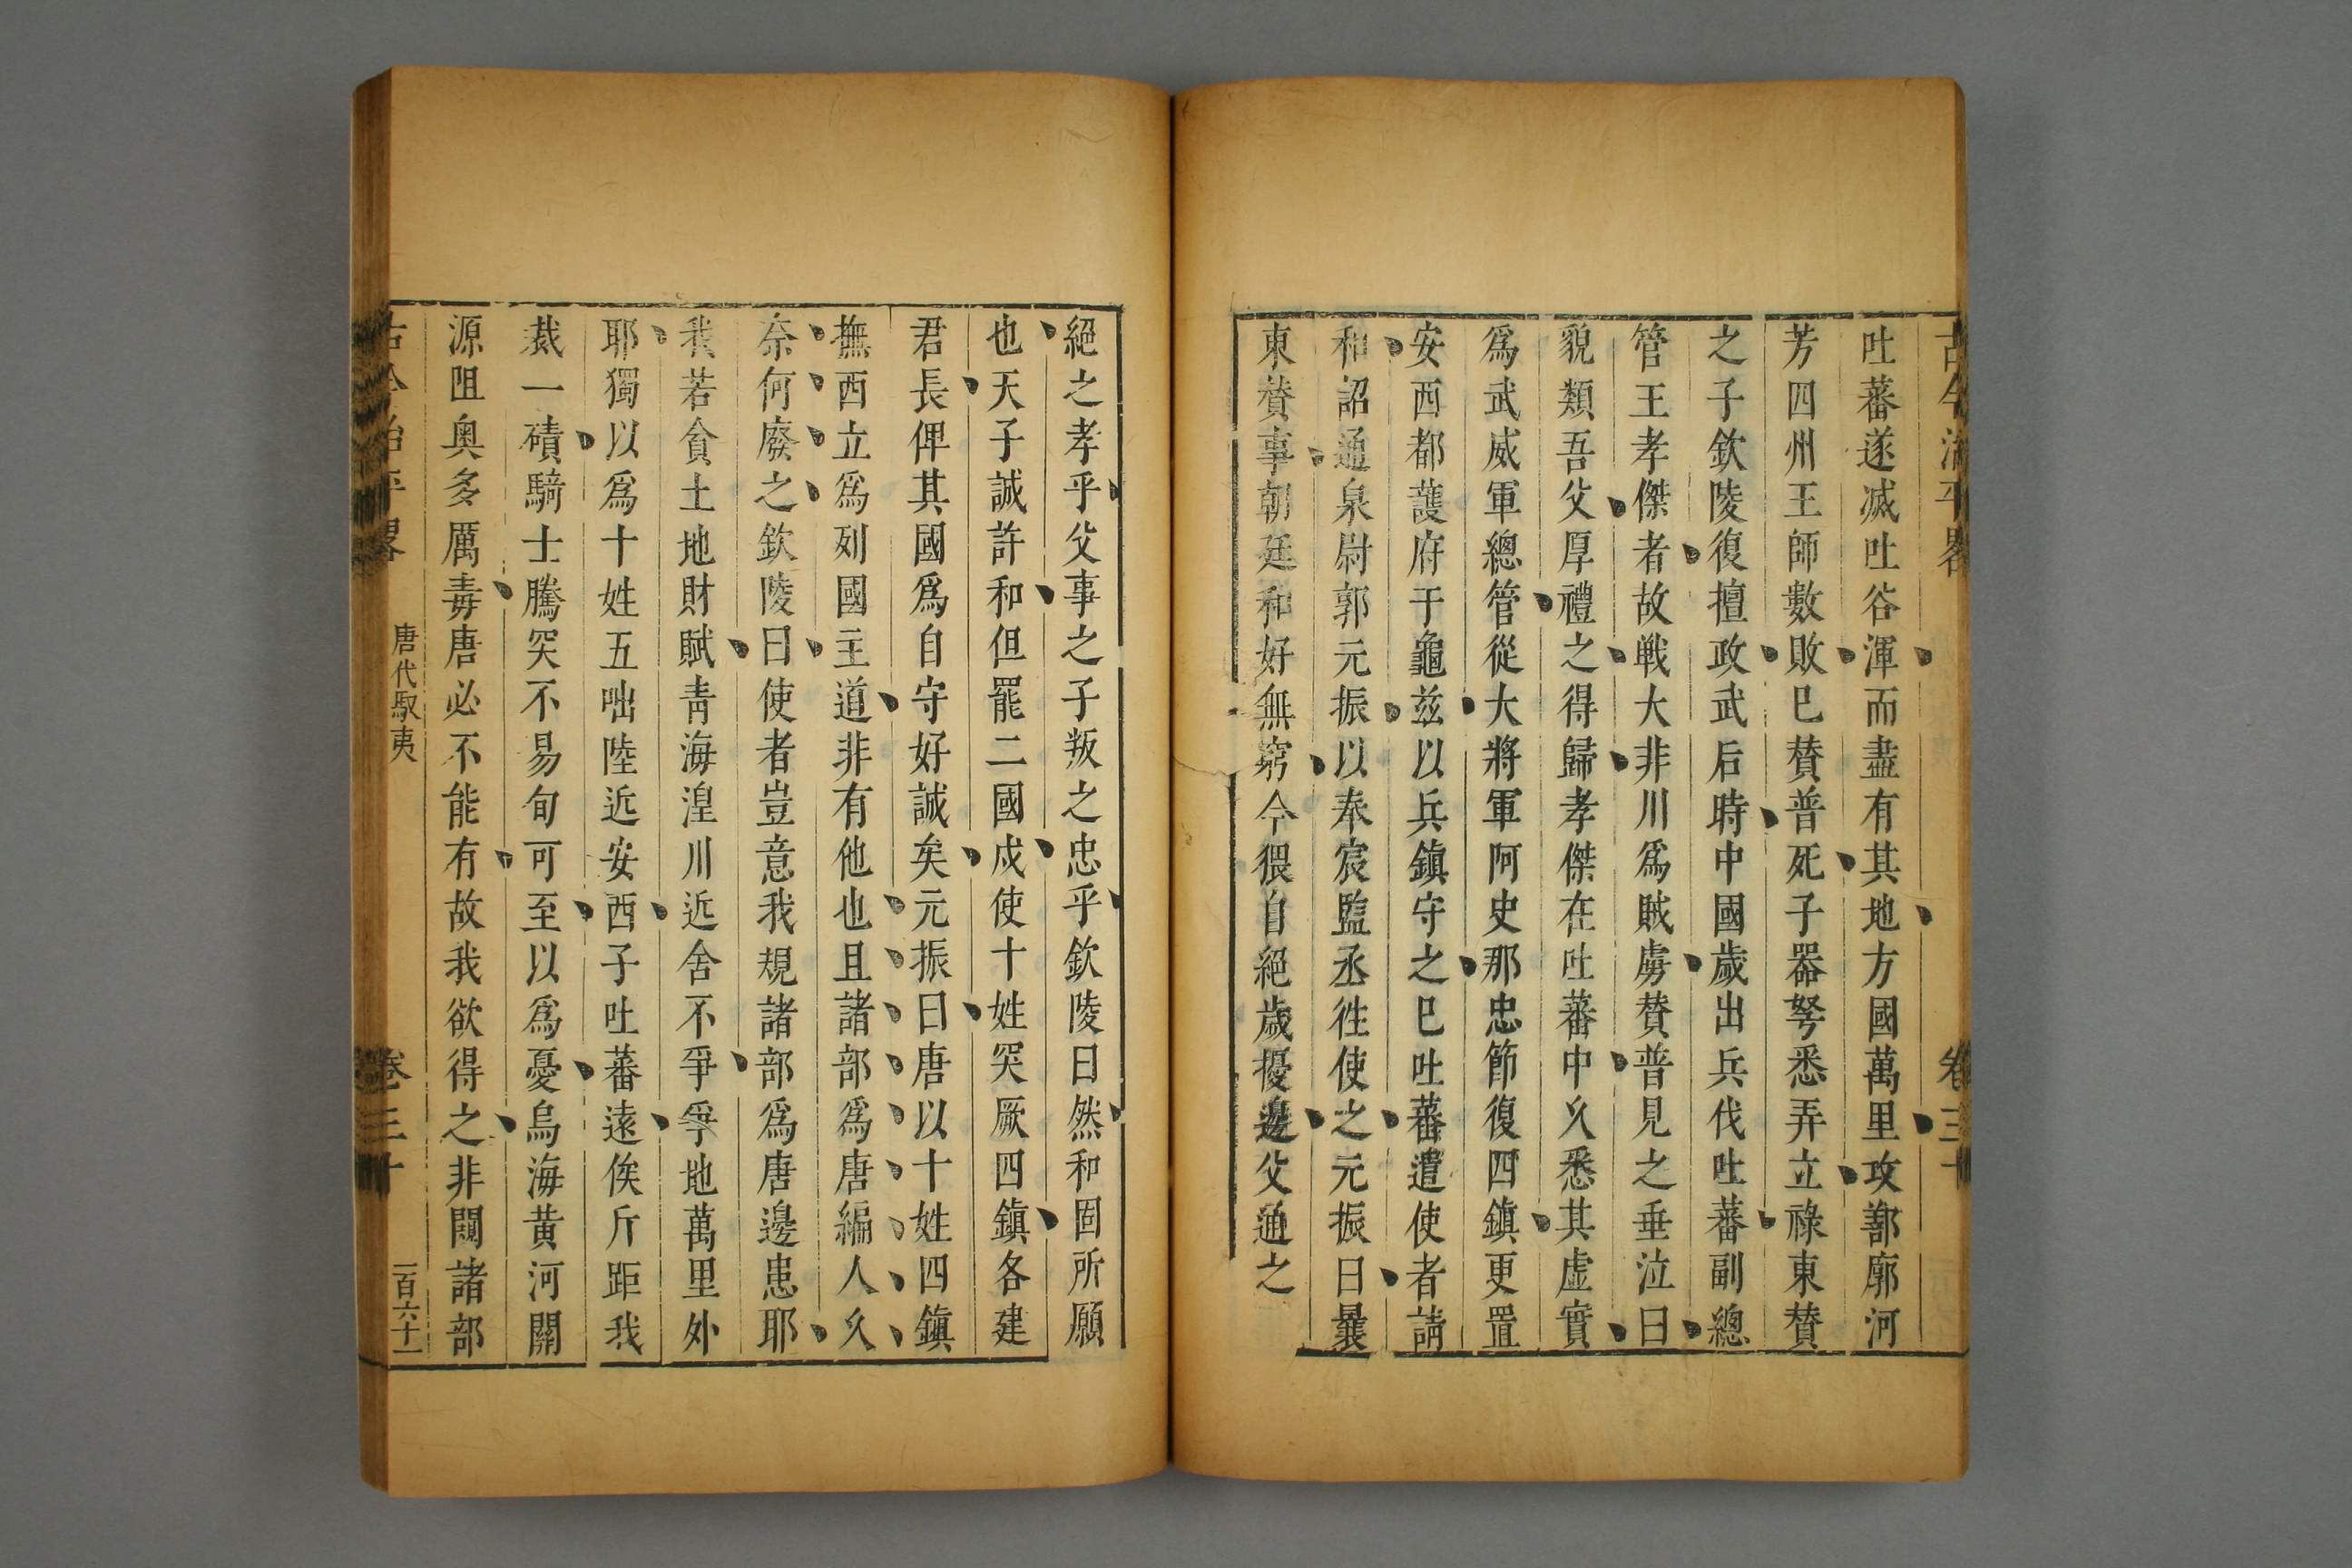 古今治平畧 卷三十
吐蕃遂滅吐谷渾而盡有其地方國萬里攻鄯廓河
芳四州王師數敗巳贊普死子器弩悉弄立祿東贊
之子欽陵復擅政武后時中國歲出兵伐吐蕃副總
管王孝傑者故戰大非川爲賊虜贊普見之垂泣曰
貌類吾父厚禮之得歸孝傑在吐蕃中久悉其虛實
爲武威軍總管從大將軍阿史那忠節復四鎮更置
安西都護府于龜茲以兵鎮守之巳吐蕃遣使者請
和詔通泉尉郭元振以奉宸監丞徃使之元振曰曩
東贊事朝廷和好無窮今猥自絕歲擾邊父通之
絕之孝乎父事之子叛之忠乎欽陵曰然和固所願
也天子誠許和但罷二國戍使十姓突厥四鎮各建
君長俾其國爲自守好誠矣元振曰唐以十姓四鎮
撫西立爲列國主道非有他也且諸部爲唐編人久
奈何廢之欽陵曰使者豈意我規諸部爲唐邊患耶
我若貪土地財賦青海湟川近舍不爭爭地萬里外
耶獨以爲十姓五咄陸近安西子吐蕃遠俟斤距我
裁一磧騎士騰突不易旬可至以爲憂烏海黃河關
源阻奥多厲毒唐必不能有故我欲得之非闚諸部
古今治平畧 唐代馭夷 卷三十 一百六十一